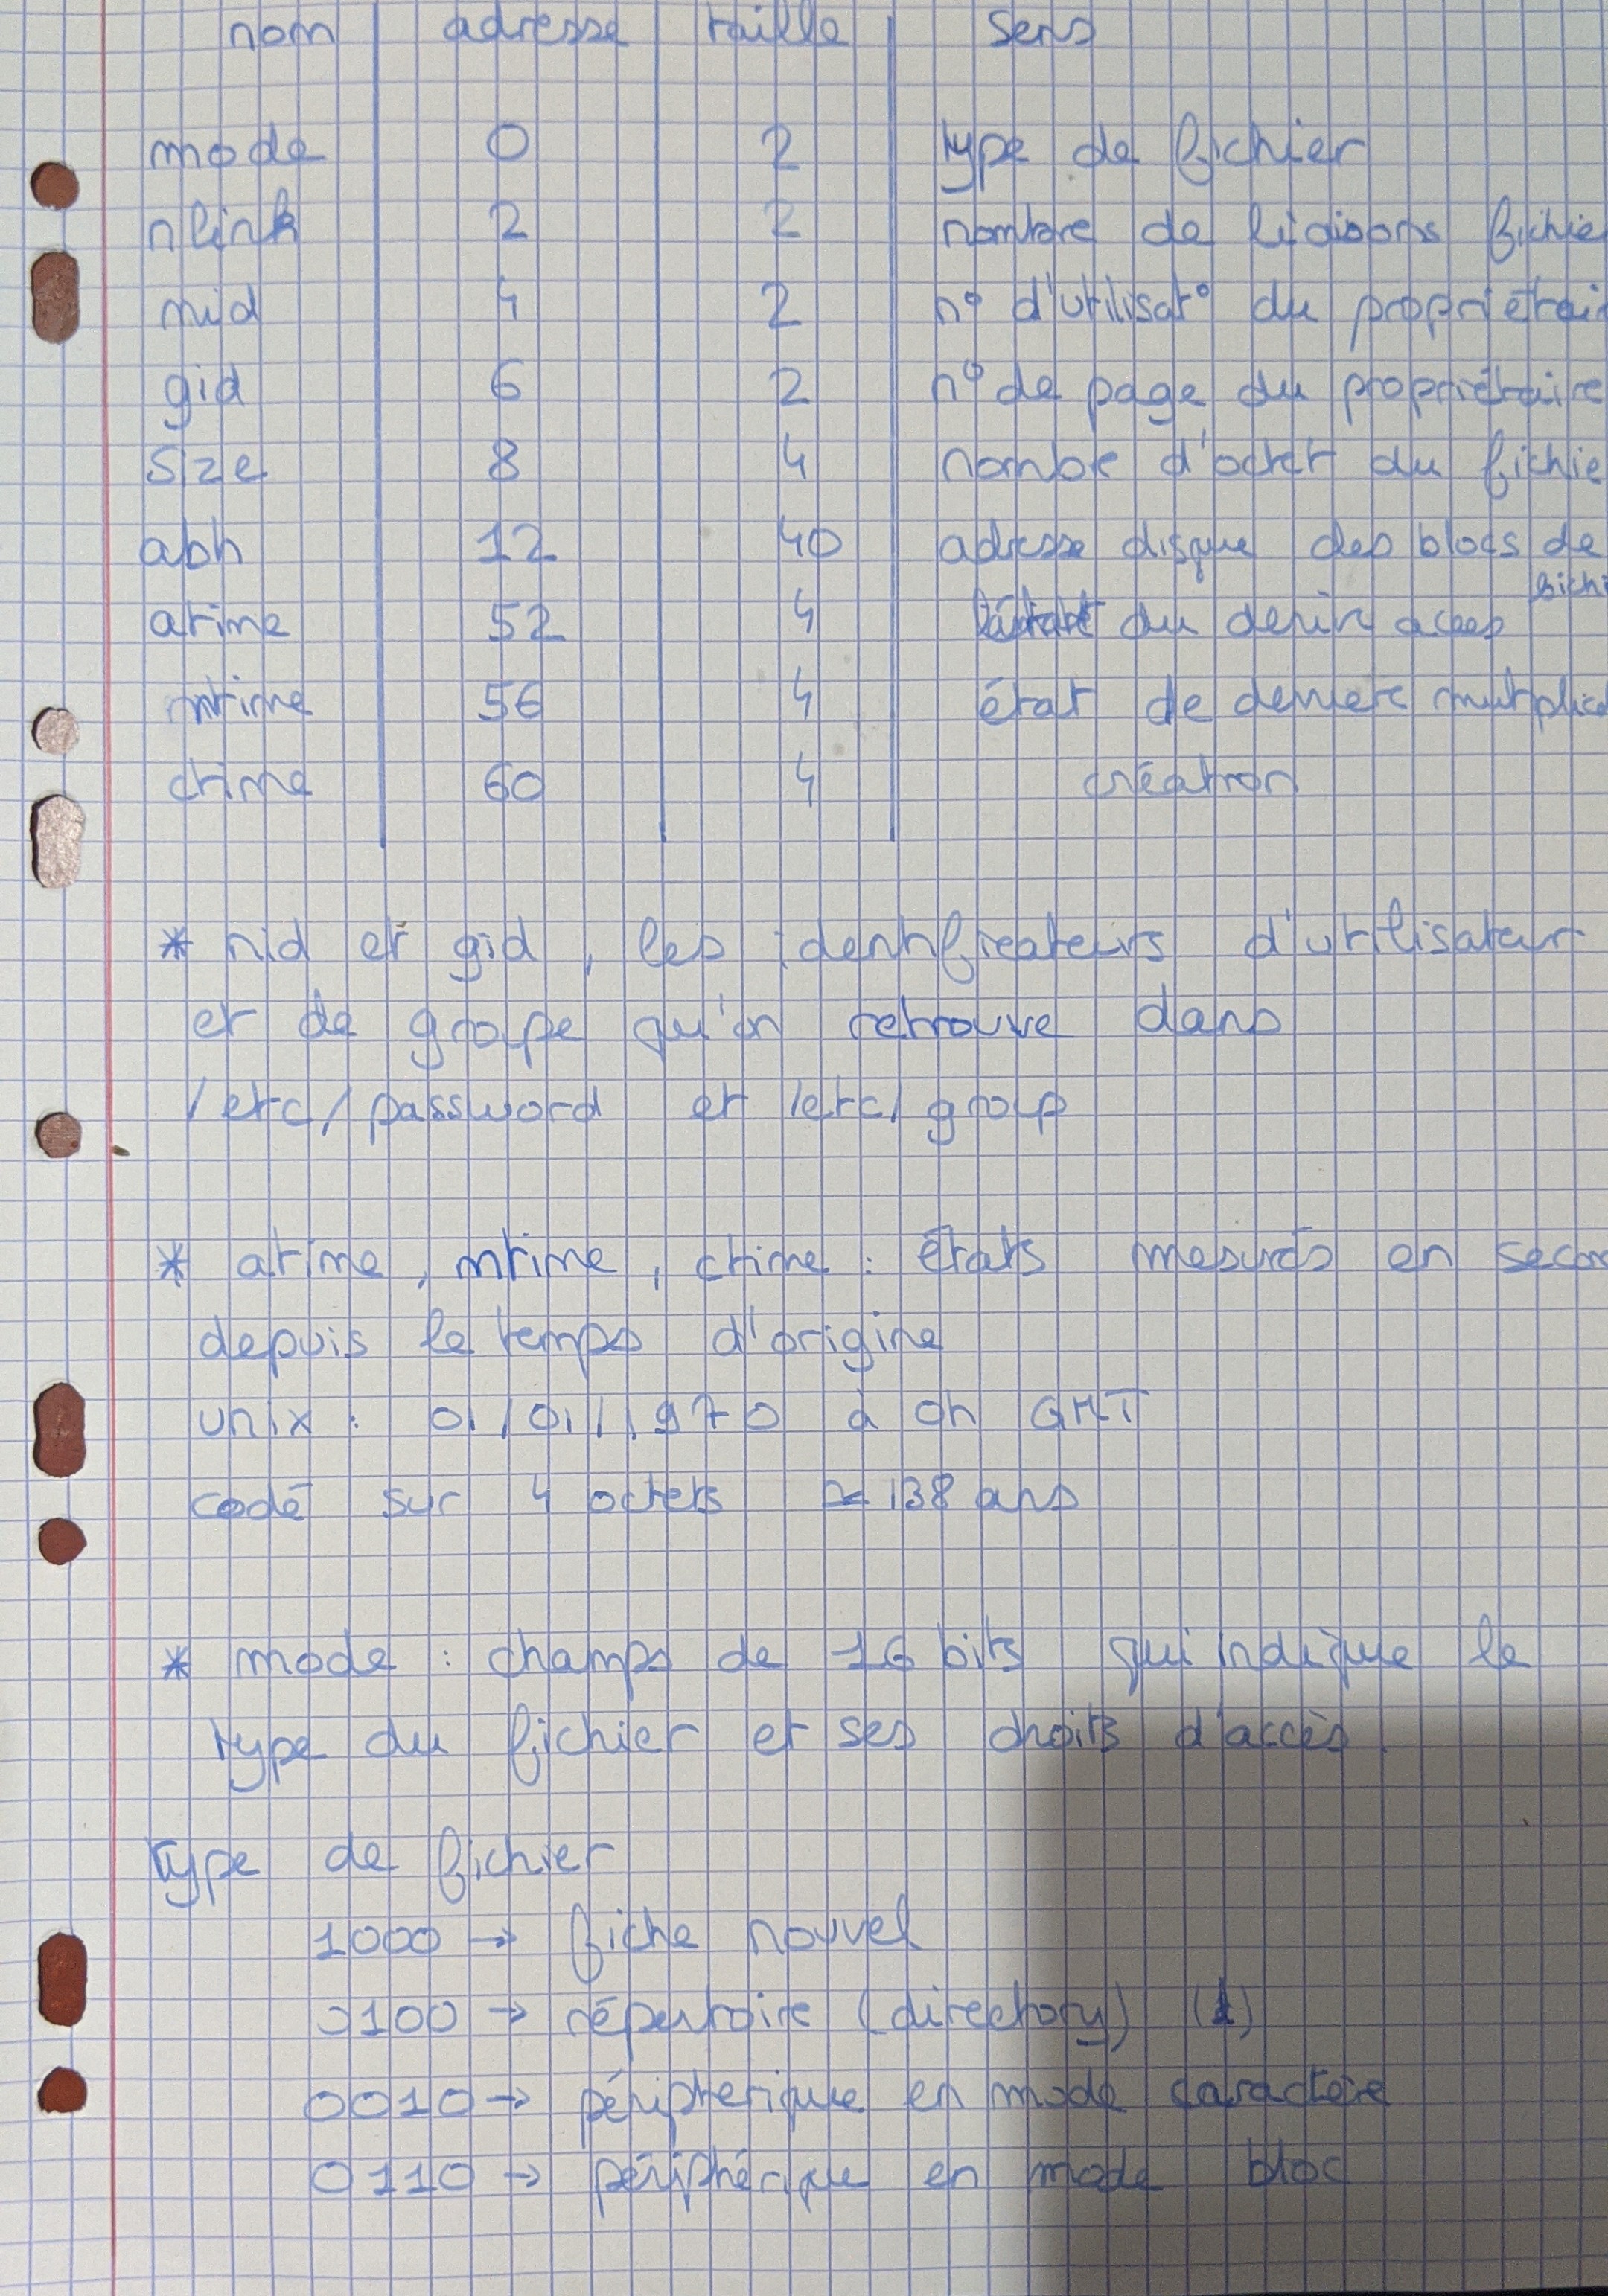 nom adresse taille sens
mode 0 2 type de fichier
nlink 2 2 nombre de liaisons fichie
nid 4 2 n° d'utilisat° du propriétai
gid 6 2 n° de page du propriétaire
size 8 4 nombre d'octet du fichie
abh 12 40 adresse disque des blocs de
fichi
atime 52 4 du dernier acces
mtime 56 4 état de derniere multiplica
ctime 60 4 création
* nid et gid, les identificateurs d'utilisateur
et de groupe qu'on retrouve dans
/etc/password et /etc/group
* atime, mtime, ctime : États mesurés en secon
depuis le temps d'origine
unix : 01/01/1970 à 0h GMT
codé sur 4 octets ≃ 138 ans
* mode : champs de 16 bits qui indique le
type du fichier et ses droits d'accès.
Type de fichier
1000 → fiche nouvel
0100 → répertoire (directory) (1)
0010 → périphérique en mode caractère
0110 → périphérique en mode bloc